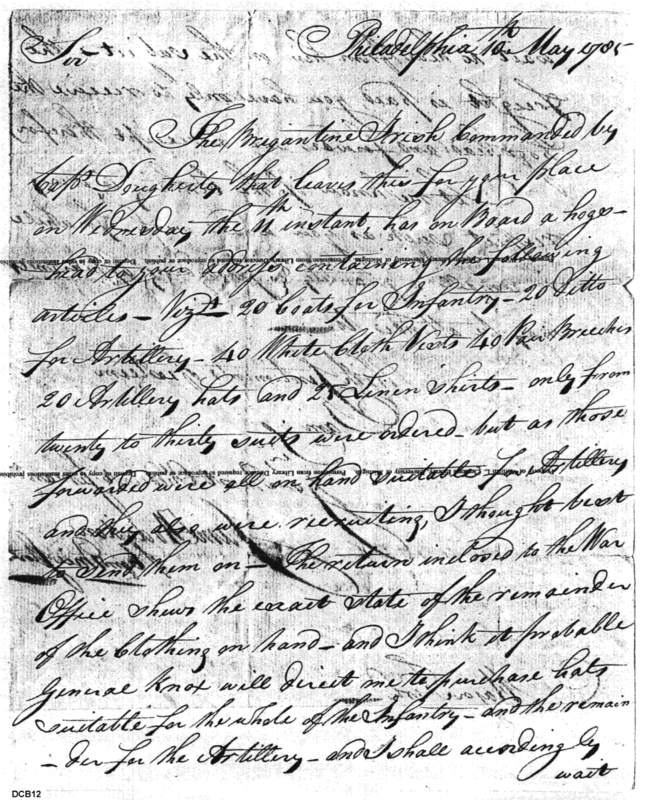 Sir Philadelphia 10th May 1785
The Brigantine Irish Commanded by
Capt. Dougherty, that leaves this for your place
on Wednesday the 11th instant, has on Board a hogs-
head to your address containing the following
articles - Vizt. 20 Coats for Infantry - 20 Ditto
for Artillery - 40 White Cloth Vests 40 Pair Breeches
20 Artillery hats and 25 Linen shirts - only from
twenty to thirty suits were ordered - but as those
forwarded were all on hand suitable for Artillery
and they also were recruiting, I thought best
to send them on - The return inclosed to the War
Office shews the exact state of the remainder
of the Clothing on hand - and I think it probable
General Knox will direct me to purchase hats
suitable for the whole of the Infantry - and the remain
- der for the Artillery - and I shall accordingly
wait
DCB12